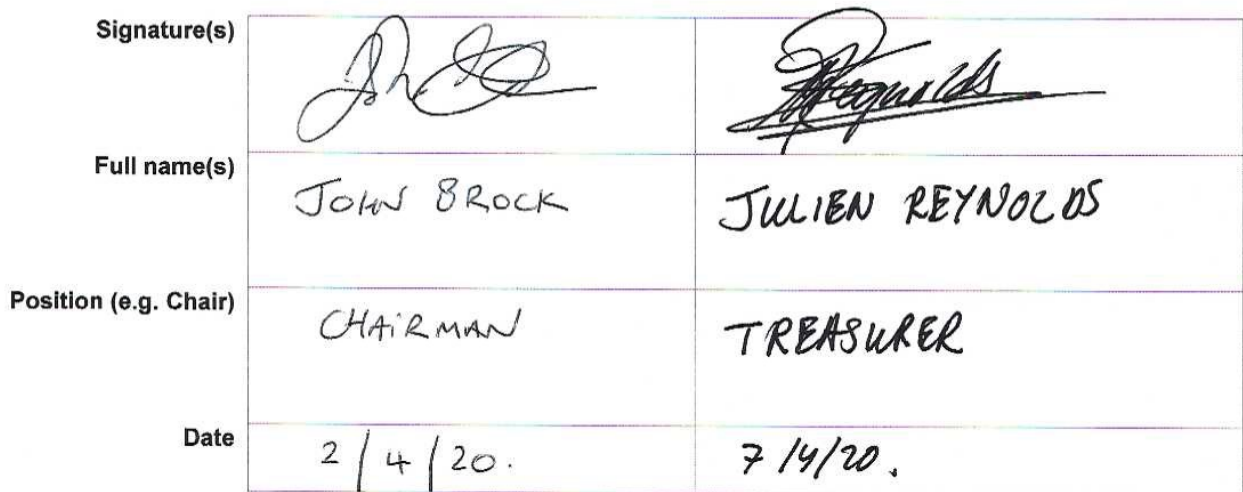 Signature(s)
Reynolds
Full name(s)
JOHN BROCK
JULIEN REYNOLDS
Position (e.g. Chair)
CHAIRMAN
TREASURER
Date
2/4/20.
7/4/20.